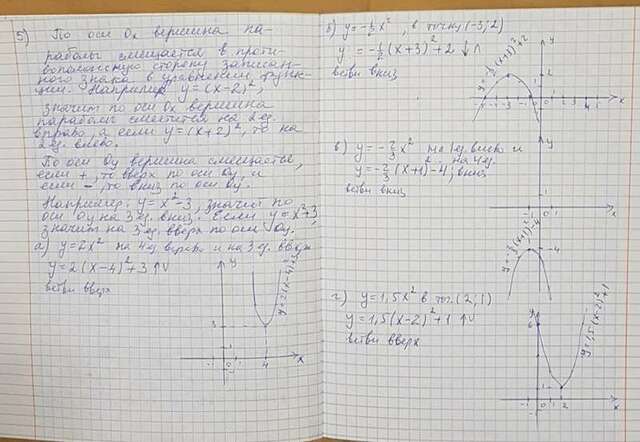 5) По оси Ox вершина па-
раболы смещается в проти-
воположную сторону записан-
ного знака в уравнении функ-
ции. Например y=(x-2)²,
значит по оси Ox вершина
параболы сместится на 2 ед.
вправо, а если y=(x+2)², то на
2 ед. влево.
По оси Oy вершина смещается,
если +, то вверх по оси Oy, и
если -, то вниз по оси Oy.
Например: y=x²-3, значит по
оси Oy на 3 ед. вниз. Если y=x²+3,
значит на 3 ед. вверх по оси Oy.
а) y=2x² на 4 ед. вправо и на 3 ед. вверх
y=2(x-4)²+3 ↑∪
ветви вверх
y
y=2(x-4)²+3
3
-1
0
1
4
x
б) y=-½x², в точку (-3; 2)
y=-½(x+3)²+2 ↓∩
ветви вниз
y=-½(x+3)²+2
y
2
-3
-1
0
1
x
в) y=-⅔x² на 1 ед. влево и
на 4 ед.
y=-⅔(x+1)²-4; вниз
ветви вниз
y
-1
0
1
x
-4
y=-⅔(x+1)²-4
г) y=1,5x² в точ. (2; 1)
y=1,5(x-2)²+1 ↑∪
ветви вверх
y
6
1
-1
0
1
2
x
y=1,5(x-2)²+1